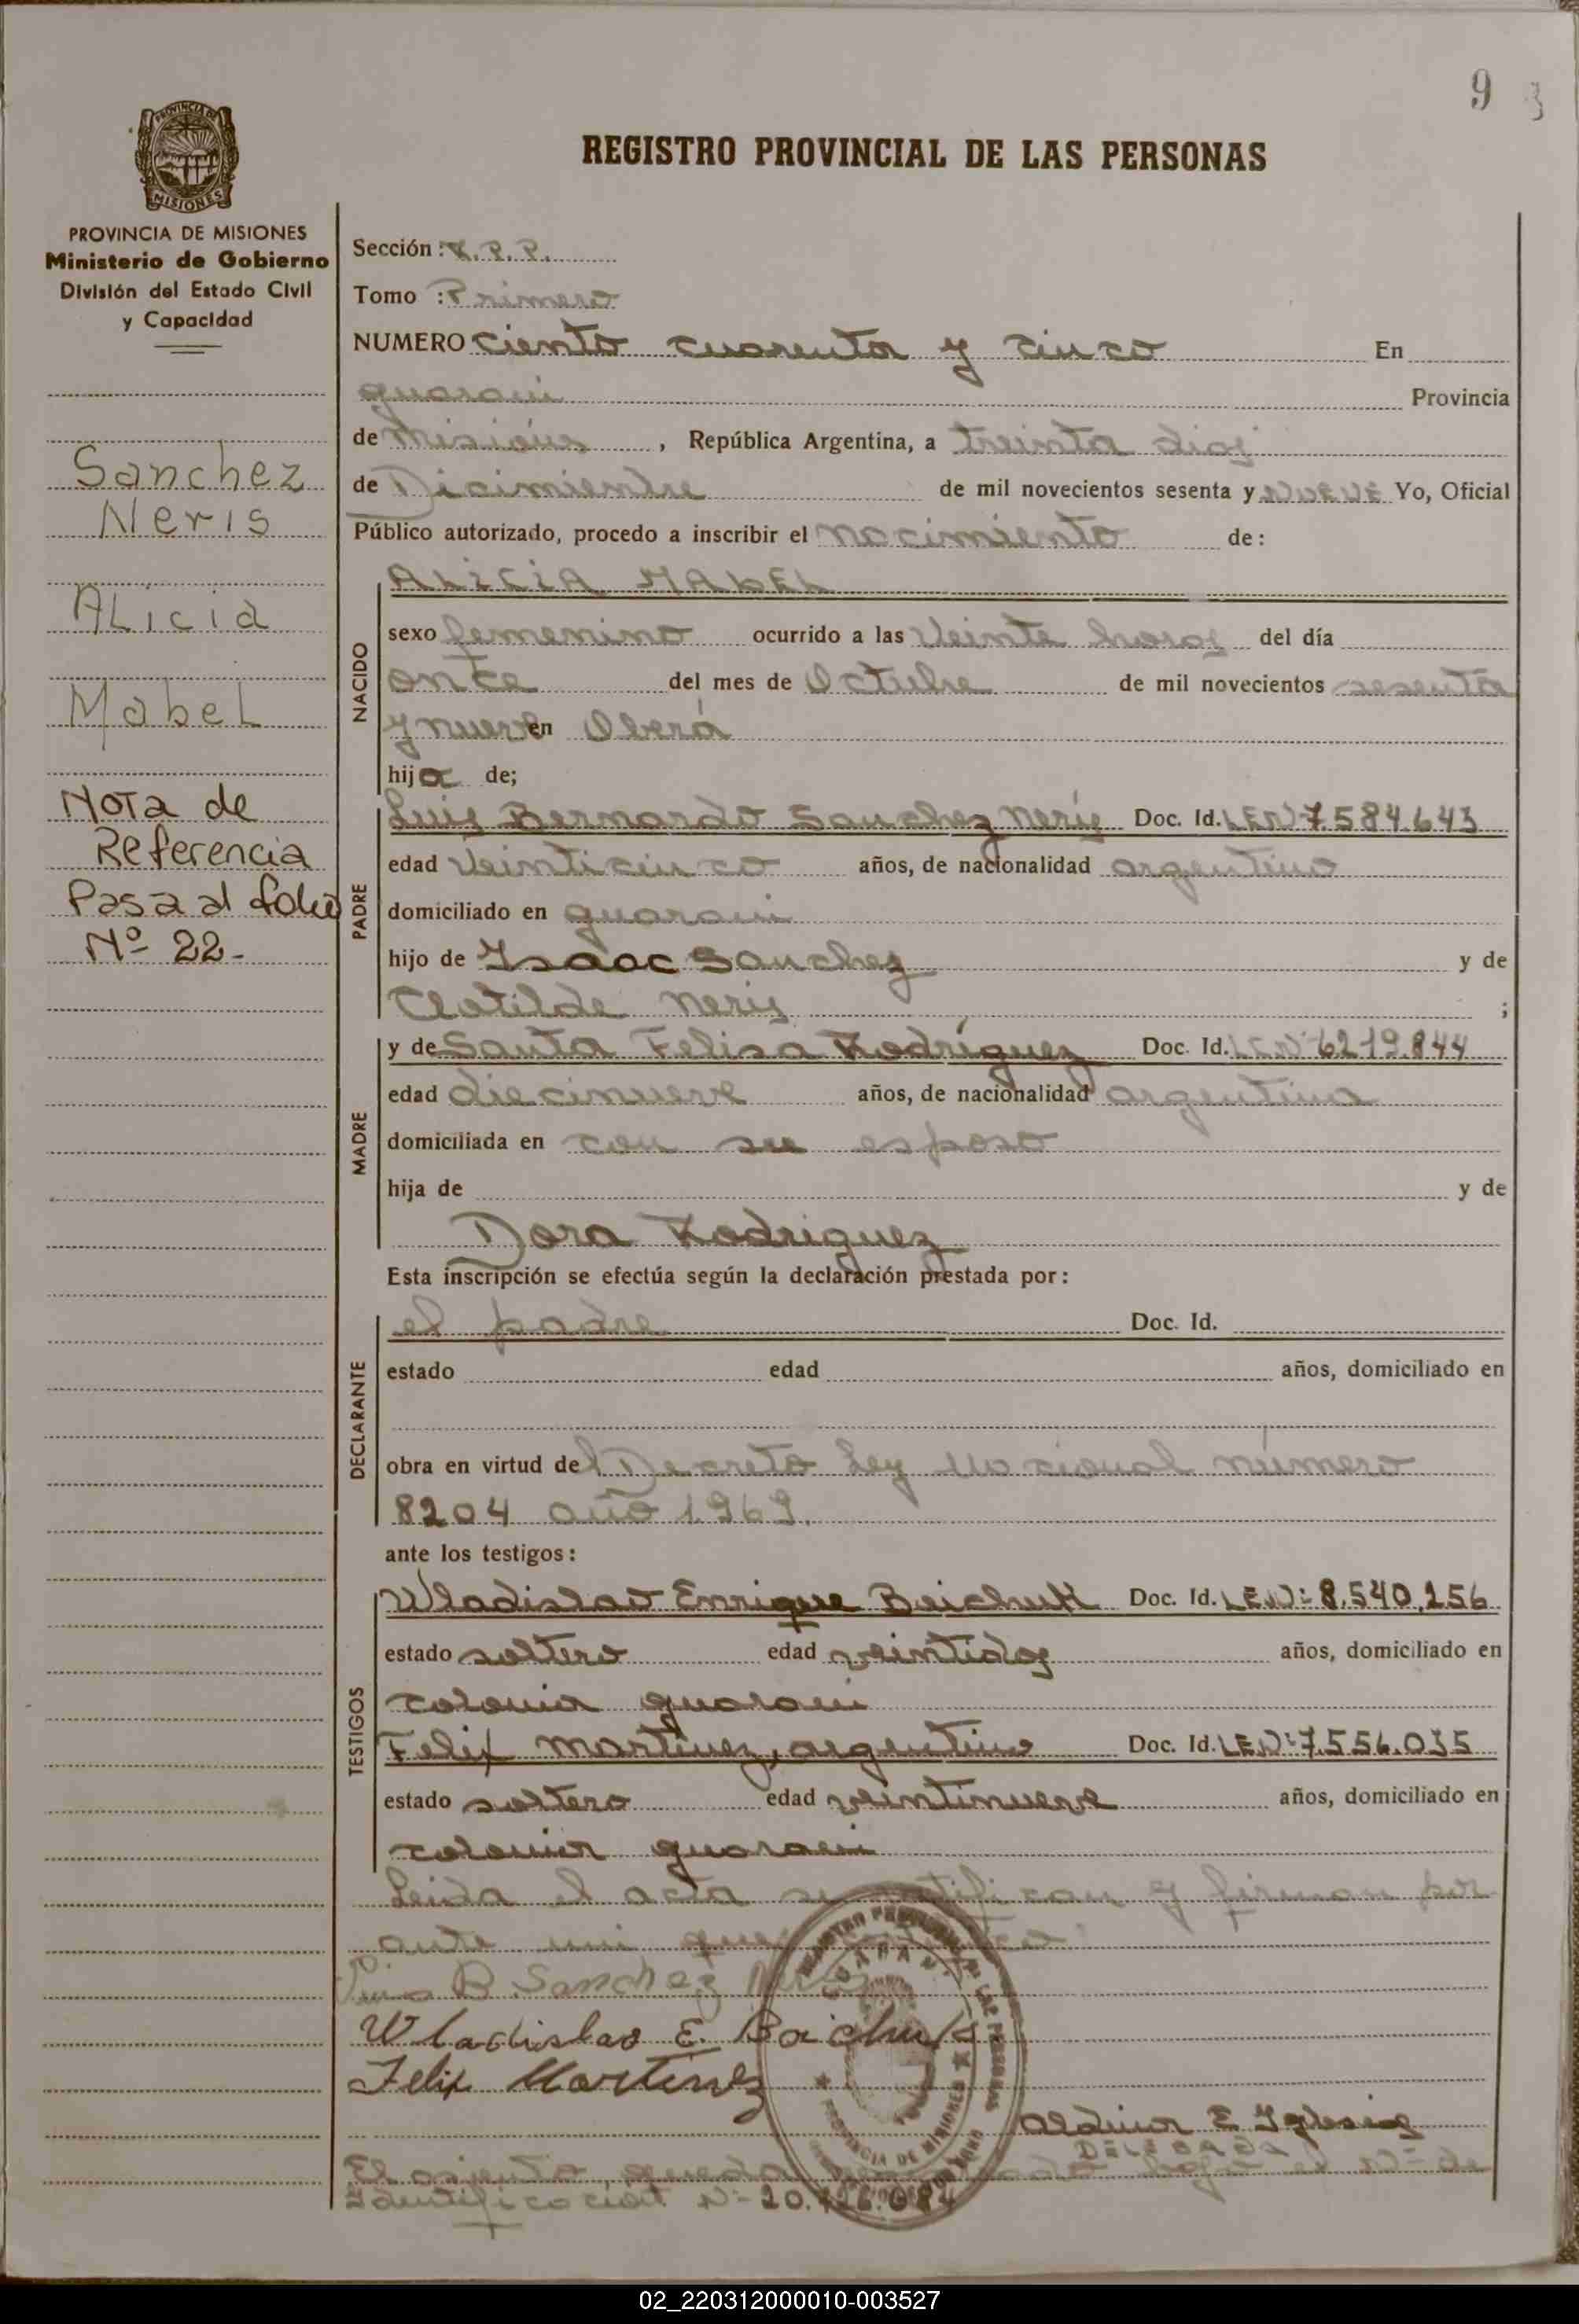 9
REGISTRO PROVINCIAL DE LAS PERSONAS
PROVINCIA DE MISIONES
PROVINCIA DE MISIONES
Ministerio de Gobierno
División del Estado Civil
y Capacidad
Sanchez
Neris
ALicia
MabeL
Nota de
Referencia
Pasa al folio
Nº 22-
Sección :
Tomo : Primero
NUMERO ciento cuarenta y cinco En
guarani Provincia
de Misiones , República Argentina, a treinta dias
de Diciembre de mil novecientos sesenta y NUEVE Yo, Oficial
Público autorizado, procedo a inscribir el nacimiento de:
ALICIA MABEL
NACIDO
sexo femenino ocurrido a las veinte horas del día
once del mes de Octubre de mil novecientos sesenta
y nueve en Oberá
hija de;
PADRE
Luis Bernardo Sanchez Neris Doc. Id. L.E.Nº 7.584.643
edad veinticinco años, de nacionalidad argentino
domiciliado en guarani
hijo de Isaac Sanchez y de
Clotilde Neris ;
MADRE
y de Santa Felisa Rodríguez Doc. Id. L.C.Nº 6.219.844
edad diecinueve años, de nacionalidad argentina
domiciliada en con su esposo
hija de y de
Dora Rodriguez
Esta inscripción se efectúa según la declaración prestada por:
DECLARANTE
el padre Doc. Id.
estado edad años, domiciliado en
obra en virtud del Decreto Ley Nacional número
8204 año 1969.
ante los testigos:
TESTIGOS
Wladislao Enrique Baichuk Doc. Id. L.E.Nº 8.540.256
estado soltero edad veintidos años, domiciliado en
colonia guarani
Felix Martinez, argentino Doc. Id. L.E.Nº 7.556.035
estado soltero edad veintinueve años, domiciliado en
colonia guarani
Leida el acta se ratifican y firman por
ante mi que
Luis B Sanchez Neris
Wladislao E. Baichuk
Felix Martinez
Aldina E Iglesias
DELEGADA
El asiento queda bajo el Nº de
Identificación Nº 20.
PROVINCIA DE MISIONES
02_220312000010-003527